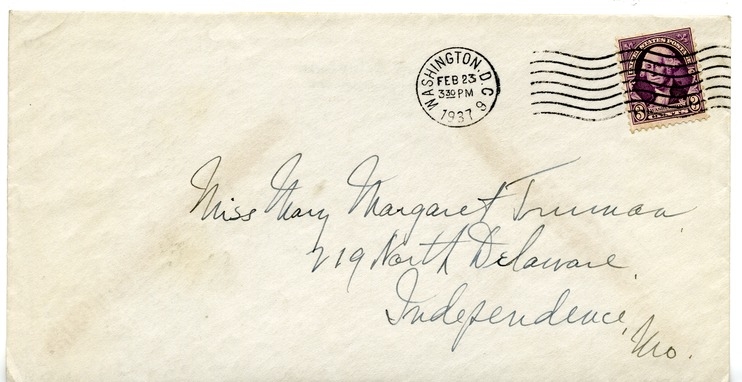 WASHINGTON, D.C. 9
FEB 23
3 30 PM
1937
UNITED STATES POSTAGE
3 3
Miss Mary Margaret Truman,
219 North Delaware,
Independence,
Mo.